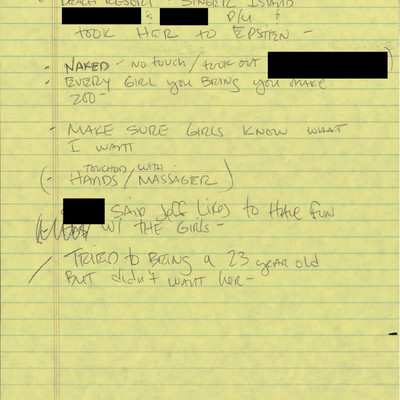 BEACH RESORT - SINGER ISLAND
& P/U &
TOOK HER TO EPSTIEN -
- NAKED - NO TOUCH / TOOK OUT )
- EVERY GIRL YOU BRING YOU MAKE
200 -
- MAKE SURE GIRLS KNOW WHAT
I WANT
TOUCHED WITH
(- HANDS / MASSAGER )
SAID Jeff Likes to HAVE FUN
W/ THE GIRLS -
/ TRIED to BRING a 23 year old
BUT didn't WANT her -